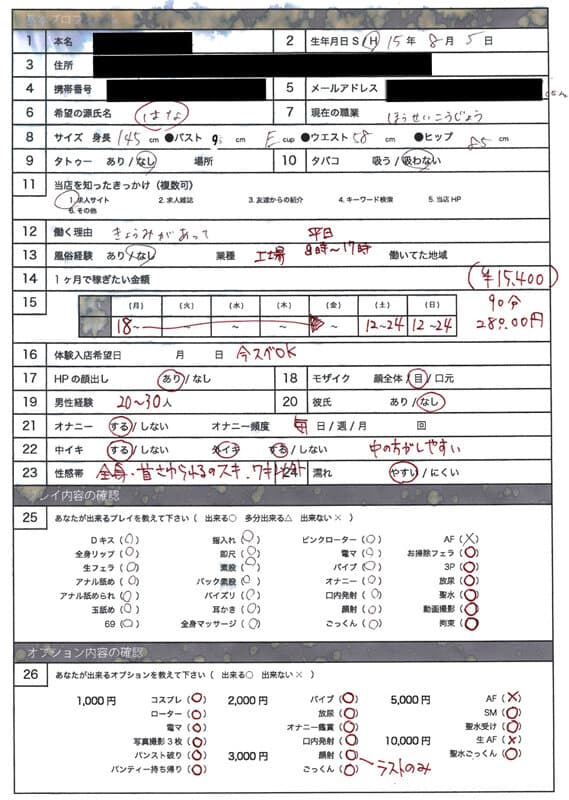 プロ
1 本名 2 生年月日 S / H 15年 8月 5日
3 住所
4 携帯番号 5 メールアドレス
6 希望の源氏名 はな 7 現在の職業 ほうせいこうじょう
8 サイズ 身長 145 cm ●バスト cm E cup ●ウエスト 58 cm ●ヒップ 85 cm
9 タトゥー あり / なし 場所 10 タバコ 吸う / 吸わない
11 当店を知ったきっかけ（複数可）
1. 求人サイト 2. 求人雑誌 3. 友達からの紹介 4. キーワード検索 5. 当店 HP
6. その他
12 働く理由 きょうみがあって 平日
13 風俗経験 あり / なし 業種 工場 8時〜17時 働いてた地域
14 1ヶ月で稼ぎたい金額 (¥15,400)
15 （月） （火） （水） （木） （金） （土） （日） 90分
18〜 〜 〜 〜 〜 12〜24 12〜24 28000円
16 体験入店希望日 月 日 今スぐOK
17 HPの顔出し あり / なし 18 モザイク 顔全体 / 目 / 口元
19 男性経験 20〜30人 20 彼氏 あり / なし
21 オナニー する / しない オナニー頻度 毎 日 / 週 / 月 回
22 中イキ する / しない 外イキ する / しない 中の方がしやすい
23 性感帯 全身・首さわられるのスキ、ワキ 24 濡れ やすい / にくい
プレイ内容の確認
25 あなたが出来るプレイを教えて下さい（ 出来る○ 多分出来る△ 出来ない× ）
Dキス（○） 指入れ（○） ピンクローター（○） AF（×）
全身リップ（○） 即尺（○） 電マ（○） お掃除フェラ（○）
生フェラ（○） 素股（○） バイブ（○） 3P（○）
アナル舐め（○） バック素股（○） オナニー（○） 放尿（○）
アナル舐められ（○） パイズリ（○） 口内発射（○） 聖水（○）
玉舐め（○） 耳かき（○） 顔射（○） 動画撮影（○）
69（○） 全身マッサージ（○） ごっくん（○） 拘束（○）
オプション内容の確認
26 あなたが出来るオプションを教えて下さい（ 出来る○ 出来ない× ）
1,000円 コスプレ（○） 2,000円 バイブ（○） 5,000円 AF（×）
ローター（○） 放尿（○） SM（○）
電マ（○） オナニー鑑賞（○） 聖水受け（○）
写真撮影3枚（○） 口内発射（○） 10,000円 生AF（×）
パンスト破り（○） 3,000円 顔射（○） 聖水ごっくん（○）
パンティー持ち帰り（○） ごっくん（○） ラストのみ